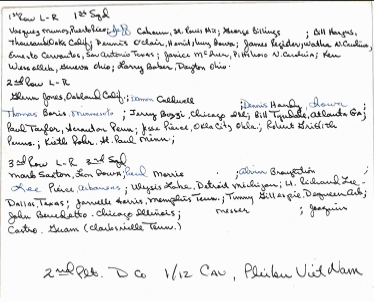 1st Row L-R 1st Sqd
Vasquez Munoz, Puerto Rico; Jeff Cahoun, St. Louis Mo; George Billings ; Bill Hargus,
Thousand Oaks Calif; Dennis O'clair, Iowa; James Register, N. Carolina,
Ernesto Cervantes, San Antonio Texas; Janice McAver, N. Carolina; Ken
Ohio; Larry Baker, Dayton Ohio.
2nd Row L-R
Glenn Jones, Oakland Calif.; Damon Caldwell ; Dennis Handy, Iowa;
Thomas Boris, Minnesota ; Jerry Bozzi, Chicago Ill; Bill Tyndale, Atlanta Ga;
Paul Taylor, Scranton Penn; Jose Pierce, Okla City Okla.; Robert Griffith
Penns.; Keith Rohr, St. Paul Minn;
3rd Row L-R 2nd Sqd
Mark Saxton, Paul Morris ; Alvin Broughton ;
Lee Peirce, Arkansas; Ulysis Lake, Detroit Michigan; H. Richard Lee -
Dallas, Texas; Harris, Memphis Tenn.; Timmy Gillespie, Dequeen Ark;
John Chicago Illinois; Messer ; Joaquin
Castro - Guam (Clarksville Tenn.)
2nd Plt. D Co 1/12 Cav, Pleiku Viet Nam